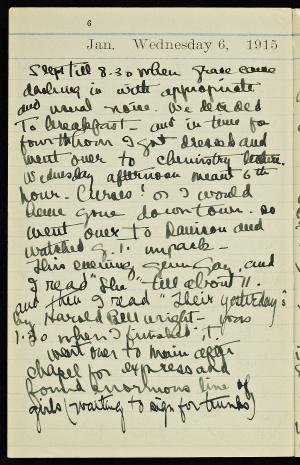 6
Jan. Wednesday 6, 1915
Slept till 8.30 when Grace came
dashing in with appropriate
and usual noise. We decided
to breakfast - and in time for
fourth hour I got dressed and
went over to chemistry lecture.
Wednesday afternoon meant 6th
hour. Curses! or I would
have gone down town. So
went over to Davison and
watched G. I. unpack -
This evening, Gay, and
I read "She" till about 11.
and then I read "Their Yesterday's
by Harold Bell Wright - was
1.30 when I finished it.
Went over to Main after
chapel for express and
found enormous line of
girls (waiting to sign for trunks)